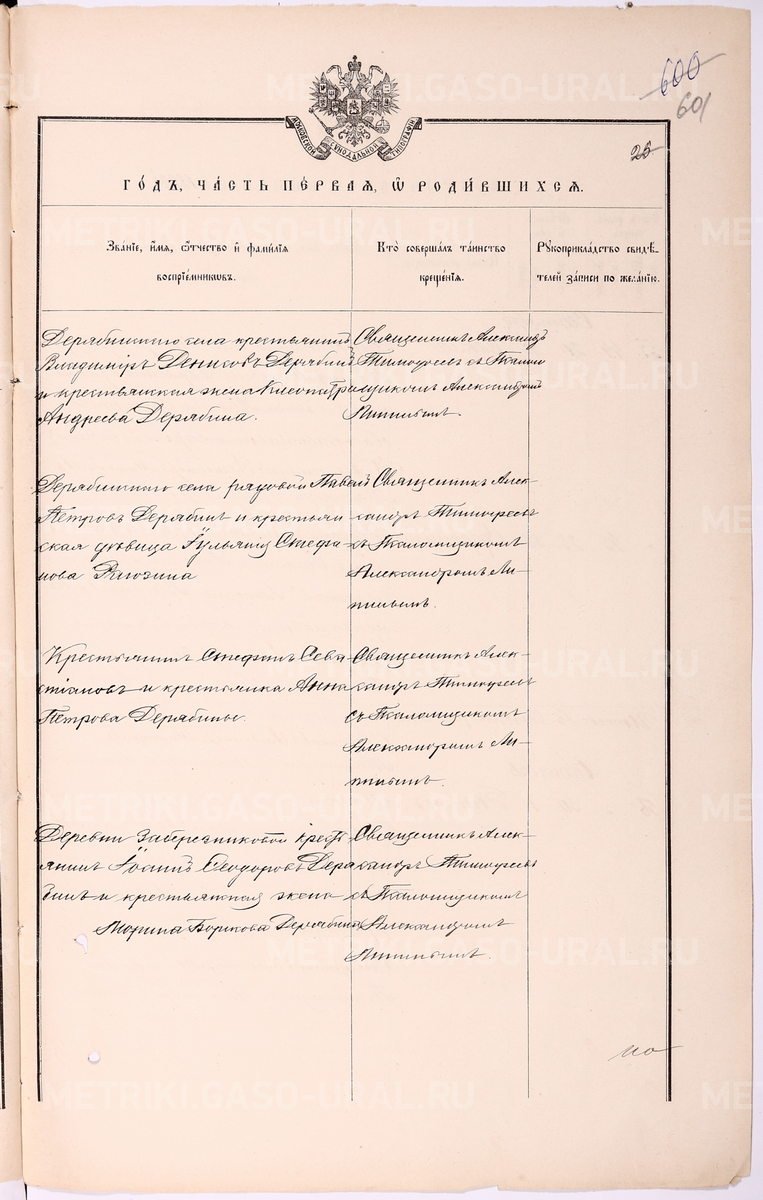 600
601
МОСКОВСКОЙ СѴНОДАЛЬНОЙ ТИПОГРАФІИ
25
ГО́ДЪ, ЧА́СТЬ ПЕ́РВАЯ, Ѿ РОДИ́ВШИХСЯ.
Зва́нїе, и́мя, ѻ҆́тчество и҆ фами́лїя
воспрїе́мникѡвъ.
Кто̀ соверша́лъ та́инство
креще́нїя.
Рꙋкоприкла́дство свидѣ́-
телей за́писи по жела́нїю.
Дерябинскаго села крестьянинъ
Владиміръ Денисовъ Дерябинъ
и крестьянская жена Клеопатра
Андреева Дерябина.
Священникъ Александръ
Тимофеевъ съ Псалом-
щикомъ Александромъ
Дерябинскаго села рядовой Павелъ
Петровъ Дерябинъ и крестьян-
ская девица Іульянія Стефа-
нова
Священникъ Алек-
сандръ Тимофеевъ
съ Псаломщикомъ
Александромъ
Крестьянинъ Стефанъ Сева-
стіановъ и крестьянка Анна
Петрова Дерябины.
Священникъ Алек-
сандръ Тимофеевъ
съ Псаломщикомъ
Александромъ
Деревни кресть-
янинъ Іоаннъ Феодоровъ Деря-
бинъ и крестьянская жена
Марина Борисова Дерябина
Священникъ Алек-
сандръ Тимофеевъ
съ Псаломщикомъ
Александромъ
METRIKI.GASO-URAL.RU